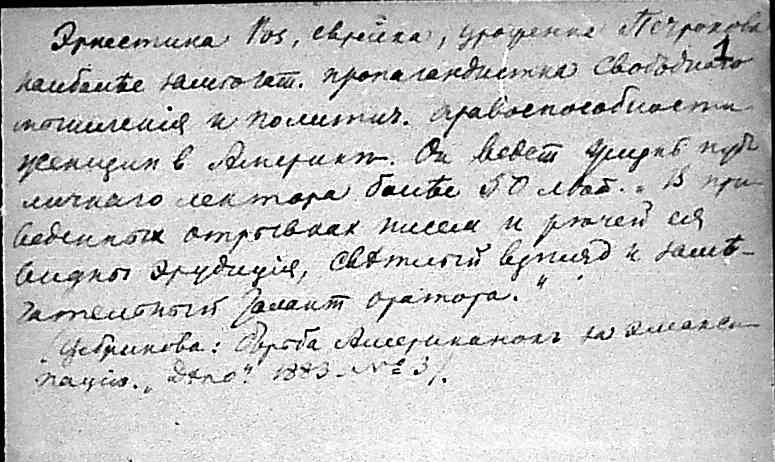 Эрнестина Роз, еврейка, уроженка Петрокова
1
наиболѣе замѣчат. пропагандистка свободнаго
мышленія и политич. правоспособности
женщин в Америкѣ. Он ведет жизнь пуб
личнаго лектора болѣе 50 лѣт. „В при-
веденных отрывках писем и рѣчей ея
видны эрудиція, свѣтлый взгляд и замѣ-
чательный талант оратора."
(Цебрикова: Борьба Американок за эманси-
пацію. „Дѣло". 1883 - № 3).